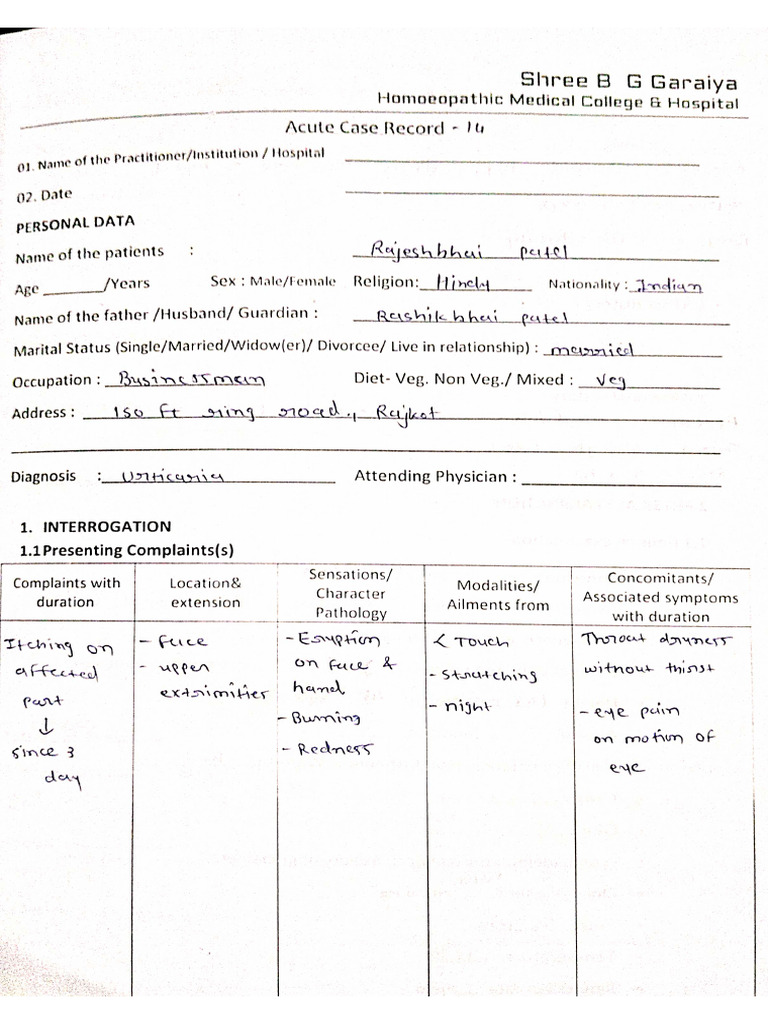 Shree B G Garaiya
Homoeopathic Medical College & Hospital
Acute Case Record - 14
01. Name of the Practitioner/Institution / Hospital
02. Date
PERSONAL DATA
Name of the patients : Rajeshbhai patel
Age ______/Years Sex : Male/Female Religion: Hindu Nationality : Indian
Name of the father /Husband/ Guardian : Rashikbhai patel
Marital Status (Single/Married/Widow(er)/ Divorcee/ Live in relationship) : married
Occupation : Businessman Diet- Veg. Non Veg./ Mixed : Veg
Address : 150 ft ring road, Rajkot
Diagnosis : Urticaria Attending Physician :
1. INTERROGATION
1.1 Presenting Complaints(s)
Complaints with
duration
Location&
extension
Sensations/
Character
Pathology
Modalities/
Ailments from
Concomitants/
Associated symptoms
with duration
Itching on
affected
part
↓
since 3
day
- face
- upper
extrimities
- Eruption
on face &
hand
- Burning
- Redness
< Touch
- stratching
- night
Throat dryness
without thirst
- eye pain
on motion of
eye